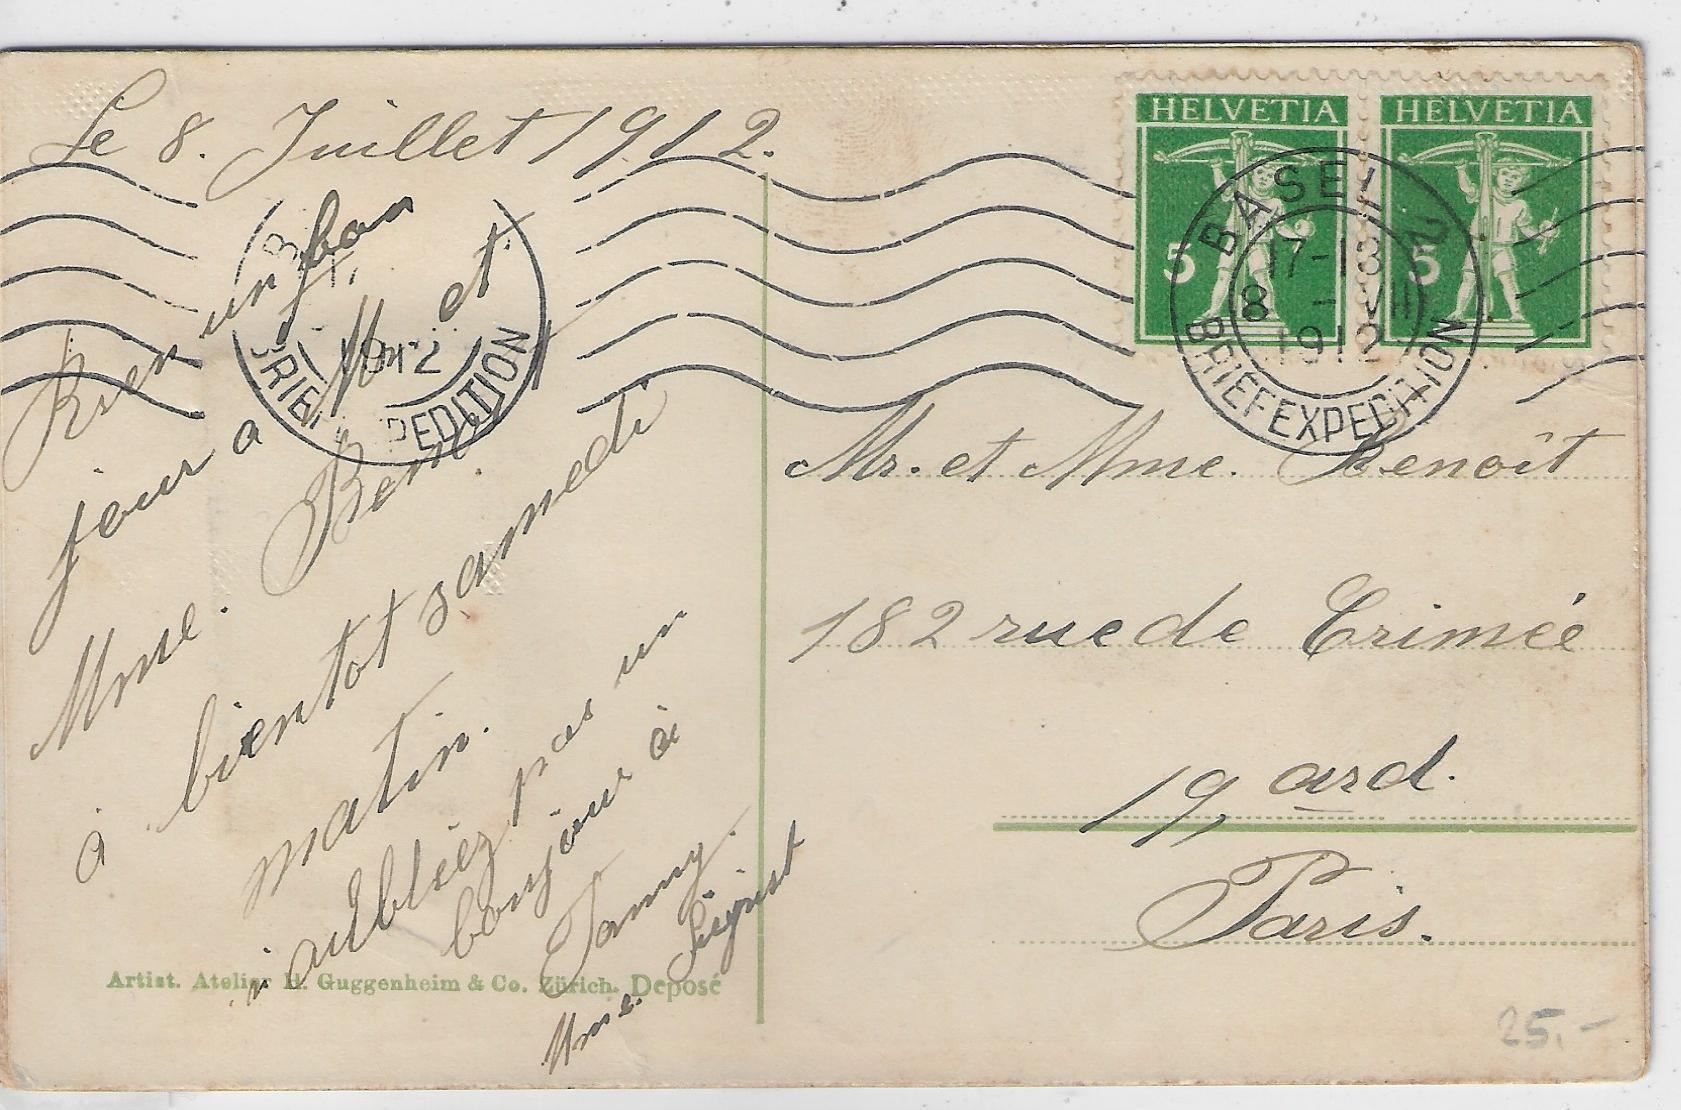 Le 8. Juillet 1912.
Rien un bon
jour a M et
Mme. Remy.
à bientot samedi
matin.
n'aubliéz pas un
bonjour à
Fanny.
Mme. Sigrist
HELVETIA
5
HELVETIA
5
BASEL 2
17-18
8 - VII
1912
BRIEFEXPEDITION
1912
BRIEFEXPEDITION
Mr. et Mme. Benoît
182 rue de Crimée
19, ard.
Paris.
Artist. Atelier H. Guggenheim & Co. Zürich. Deposé
25.-